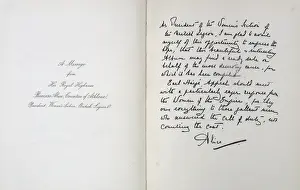 A Message
from
Her Royal Highness
Princess Alice, Countess of Athlone
President Women's Section British Legion
As President of the Women's Section of
the British Legion, I am glad to avail
myself of this opportunity to express the
hope that this beautiful
Album may find a ready sale on
behalf of the most deserving cause, for
which it has been compiled.
Earl Haig's Appeal should meet
with a particularly eager response from
the Women of the Empire, for they
owe everything to those gallant men
who answered the call of duty, not
counting the cost.
Alice